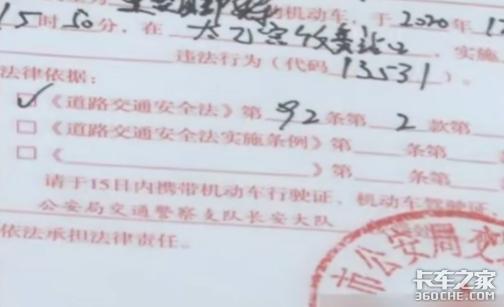 的机动车，于2020年1
15时50分，在太乙宫收费站口，实施
违法行为（代码13531）。
法律依据：
☑《道路交通安全法》第92条第2款第
□《道路交通安全法实施条例》第 条第
□《 》第 条第
请于15日内携带机动车行驶证、机动车驾驶证
公安局交通警察支队长安大队
依法承担法律责任。
市公安局交
卡车之家
360CHE.COM